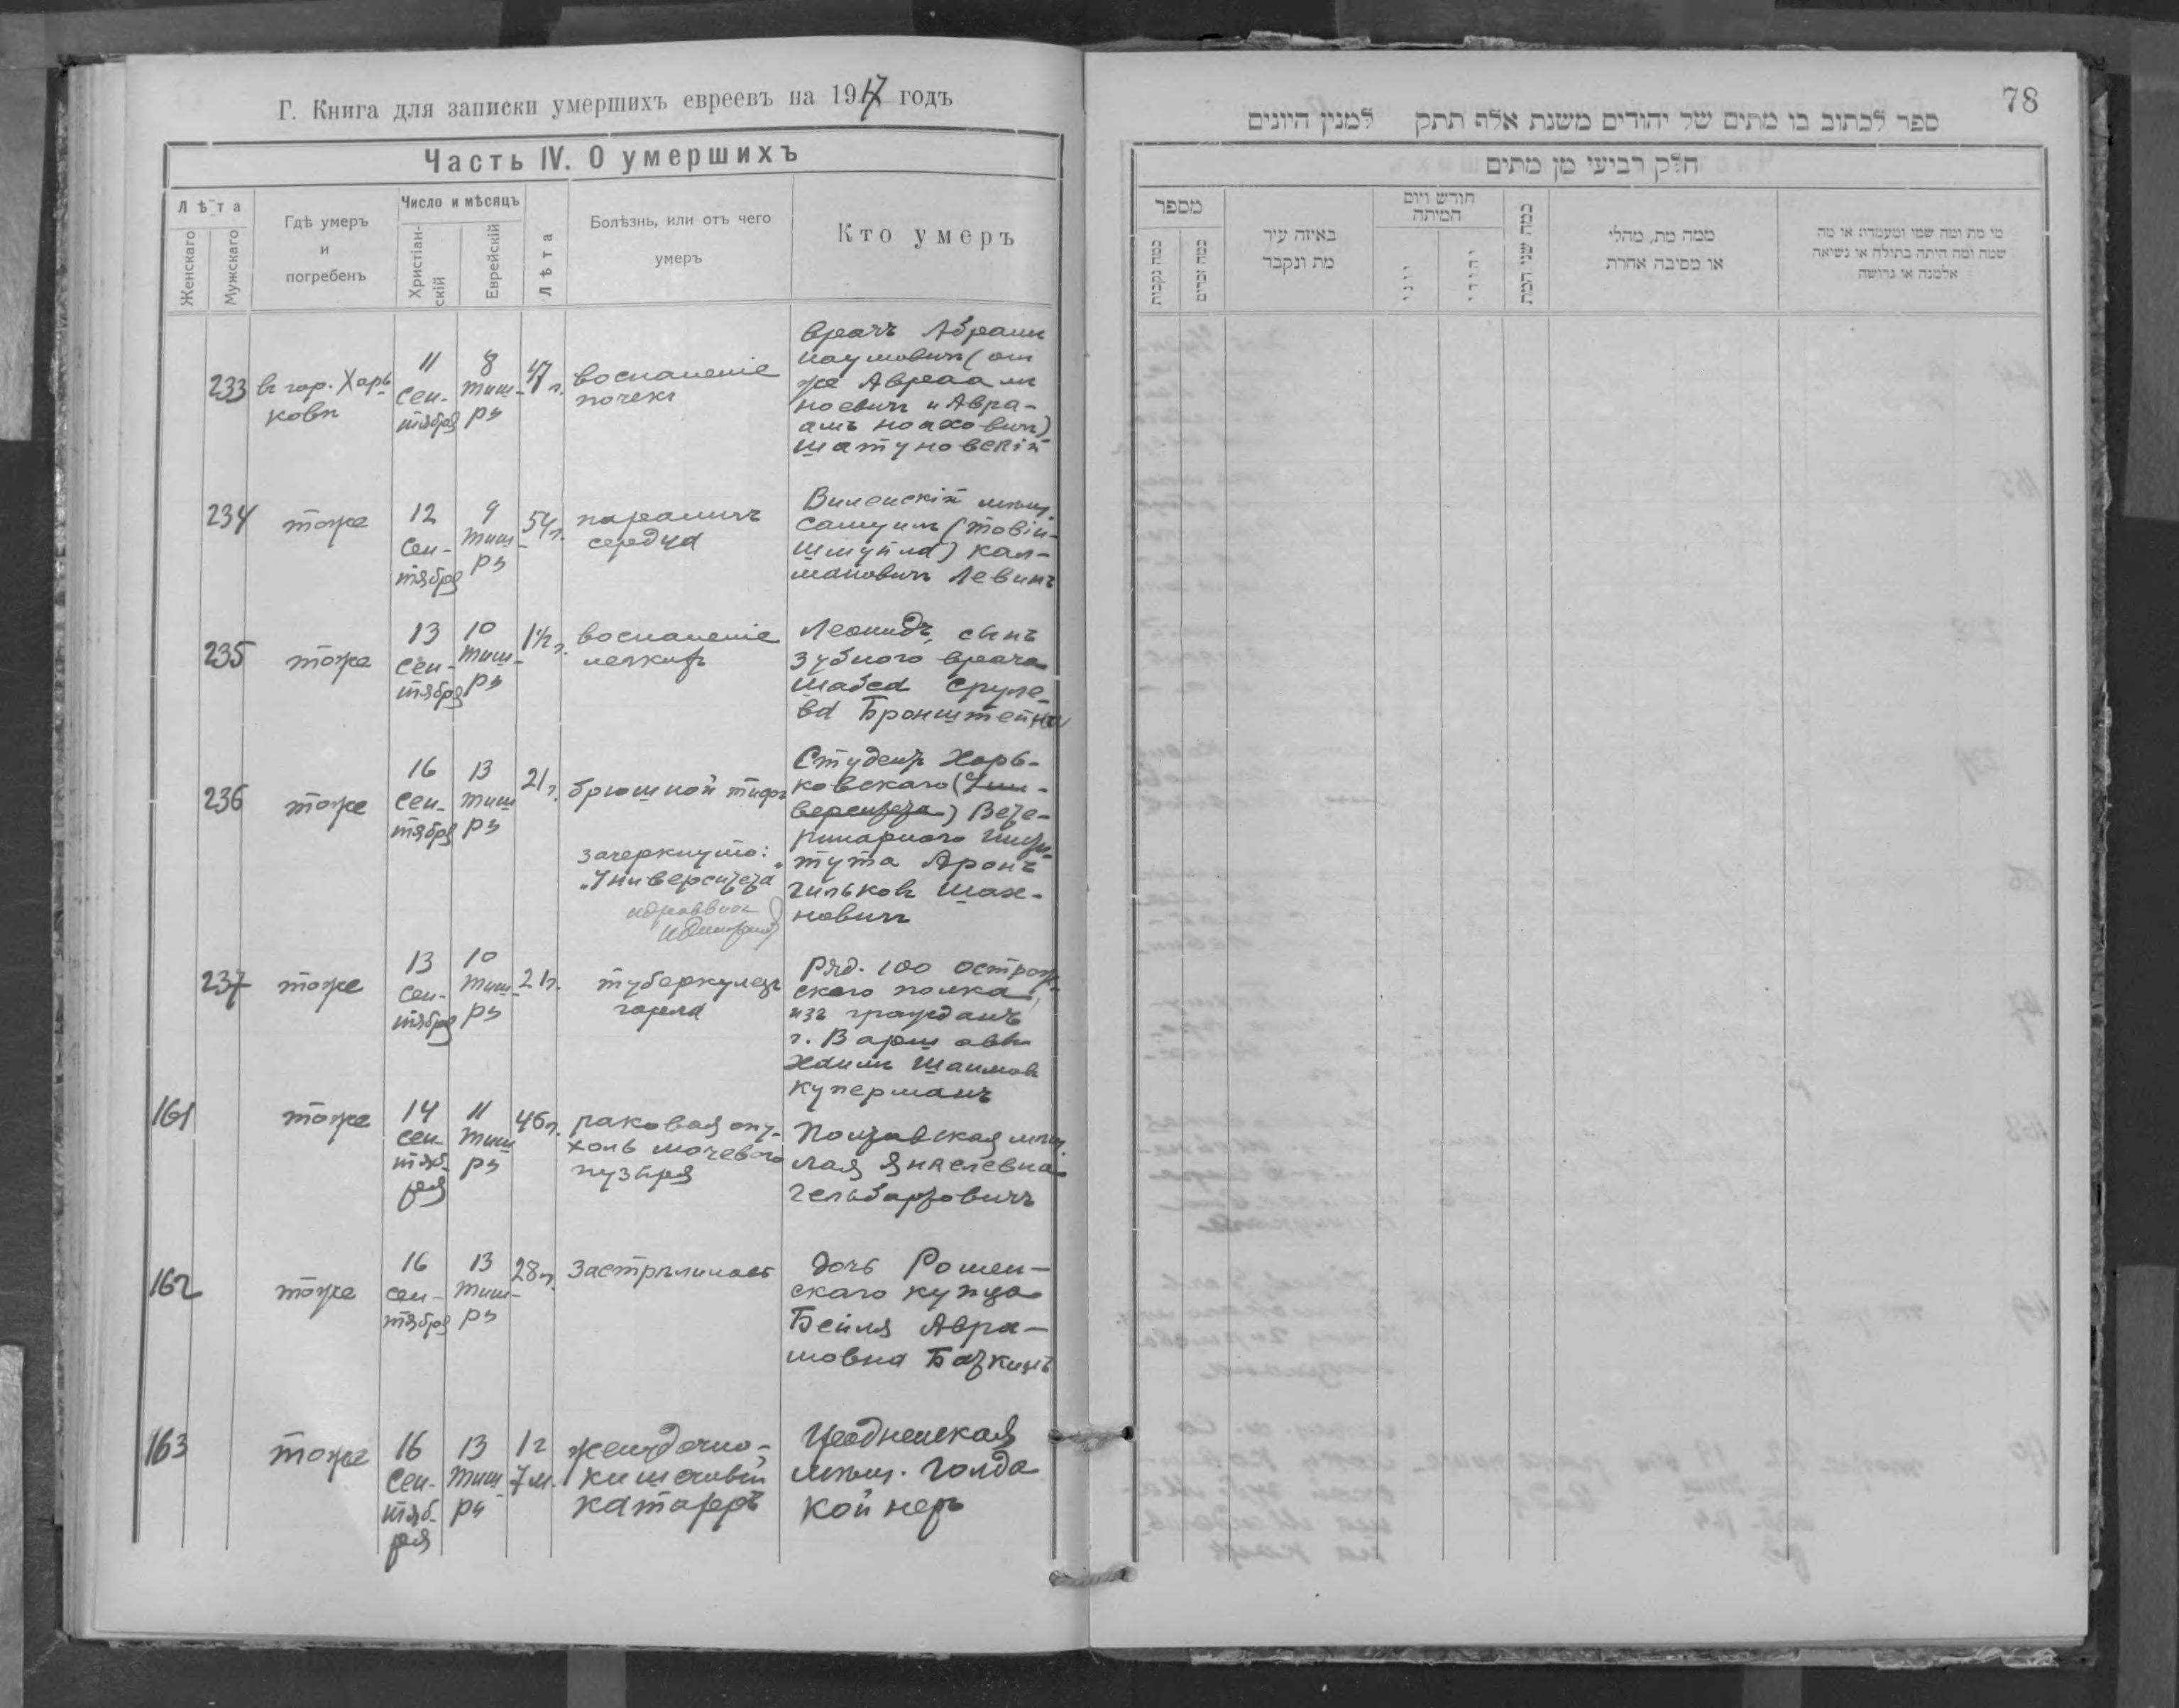 Г. Книга для записки умершихъ евреевъ на 1917 годъ
Часть IV. О умершихъ
Лѣта
Женскаго
Мужскаго
Гдѣ умеръ
и
погребенъ
Число и мѣсяцъ
Христіан-
скій
Еврейскій
Лѣта
Болѣзнь, или отъ чего
умеръ
Кто умеръ
233
въ гор. Харь
ковѣ
11
Сен-
тября
8
тиш-
ри
47 л.
воспаленіе
почекъ
врачъ Абрамъ
Наумовичъ (он
же Авраамъ
Ноевичъ и Авра-
амъ Ноаховичъ)
Шатуновскій
234
тоже
12
Сен-
тября
9
тиш-
ри
54 г.
параличъ
сердца
Виленскій мѣщ.
Самуилъ (Товій-
Шмуйла) Кал-
мановичъ Левинъ
235
тоже
13
Сен-
тября
10
тиш-
ри
1½ г.
воспаленіе
легкихъ
Леонидъ, сынъ
зубного врача
Шабса Сруле-
ва Бронштейна
236
тоже
16
Сен-
тября
13
тиш
ри
21 г.
брюшной тифъ
Студентъ Харь-
ковскаго (Уни-
верситета) Вете-
ринарнаго Инсти-
тута Аронъ
Гильковъ Шах-
новичъ
зачеркнуто:
„Университета"
237
тоже
13
Сен-
тября
10
тиш-
ри
21 г.
туберкулезъ
горла
Ряд. 100 Острож-
скаго полка,
изъ гражданъ
г. Варшавы
Хаимъ Шаимовъ
Куперманъ
161
тоже
14
Сен-
тяб-
ря
11
тиш
ри
46 л.
раковая опу-
холь мочевого
пузыря
Полтавская мѣщ.
Гельбартовичъ
162
тоже
16
сен-
тября
13
тиш-
ри
28 л.
застрѣлилась
дочь Ромен-
скаго купца
Бейля Авра-
мовна
163
тоже
16
Сен-
тяб-
ря
13
тиш-
ри
1 г
7 м.
желудочно-
кишечный
катарръ
мѣщ. Голда
Койнеръ
78
ספר לכתוב בו מתים של יהודים משנת אלף תתק למנין היונים
חלק רביעי מן מתים
מספר
כמה נקבות
כמה זכרים
באיזה עיר
מת ונקבר
חודש ויום
המיתה
יוני
יהודי
כמה שני המת
ממה מת, מהלי
או מסיבה אחרת
מי מת ומה שמו ומעמדו או מה
שמה ומה היתה בתולה או נשיאה
אלמנה או גרושה